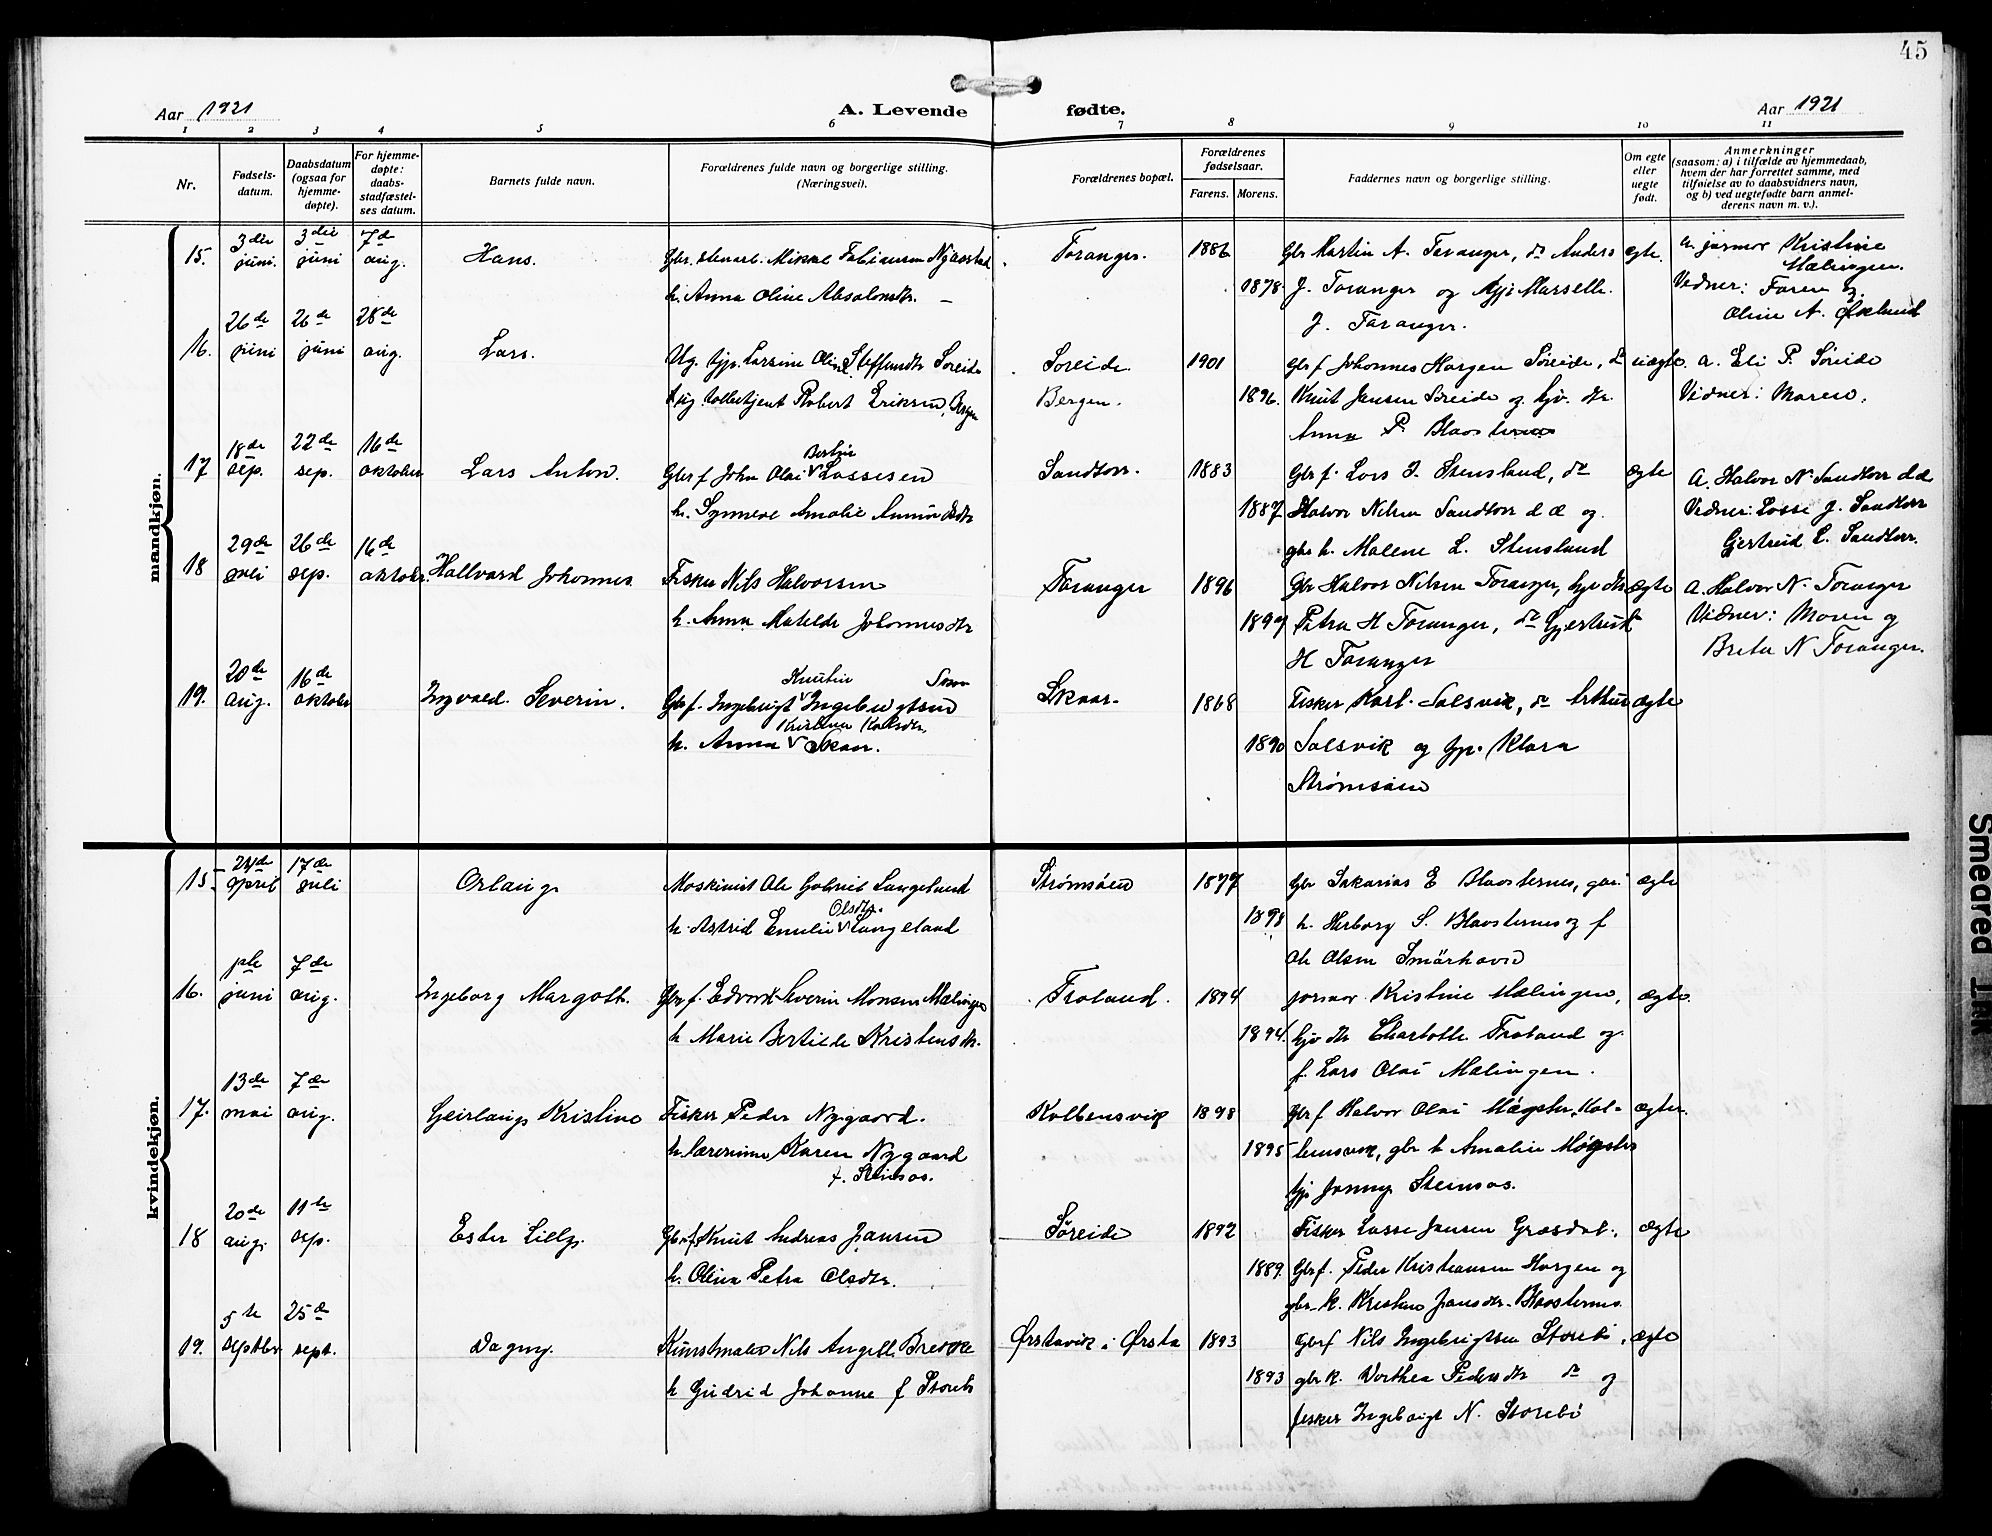 45
Aar 1921 A. Levende fødte. Aar 1921
1 2 3 4 5 6 7 8 9 10 11
Nr.
Fødsels-
datum.
Daabsdatum
(ogsaa for
hjemme-
døpte).
For hjemme-
døpte:
daabs-
stadfæstel-
ses datum.
Barnets fulde navn.
Forældrenes fulde navn og borgerlige stilling.
(Næringsvei).
Forældrenes bopæl.
Forældrenes
fødselsaar.
Farens. Morens.
Faddernes navn og borgerlige stilling.
Om egte
eller
uegte
født.
Anmerkninger
(saasom: a) i tilfælde av hjemmedaab,
hvem der har forrettet samme, med
tilføielse av to daabsvidners navn,
og b) ved uegtefødte barn anmel-
derens navn m. v.).
mandkjøn.
15.
3die
juni.
3die
juni
7de
aug.
Hans.
Gbr. stenarb. Mikal Fabiansen Nygaastad
h. Anna Oline Absalonsdtr.
Toranger.
1886
1878
Gbr Martin A. Taranger, do Anders
J. Toranger og
J. Taranger.
egte.
a. jormor Kristine
Mælingen.
Vidner: Faren og
Oline A. Økland
16.
26de
juni
26de
juni
28de
aug.
Lars.
Ug. tjp. Larsine Oline Steffensdtr Søreide
Ug. toldbetjent Robert Eriksen, Bergen
Søreide.
Bergen.
1901
1896.
Gbr f Johannes Horgen Søreide, do
Knut Jansen Søreide og tjv. dtr.
Anna P. Blaosternes
uægte.
a. Eli P. Søreide
Vidner: Moren.
17
18de
sep.
22de
sep.
16de
oktober
Lars Anton.
Bertin
Gbr f John Olai Lassesen
h. Synneve Amalie
Sandtorr.
1883
1887
Gbr f. Lars J. Stensland, do
Halvor Nilsen Sandtorr d æ og
gbr h. Malene L. Stensland
ægte
A. Halvor N. Sandtorr d æ
Vidner: Lasse J. Sandtorr
Gjertrud L. Sandtorr.
18
29de
juli
26de
sep.
16de
oktober
Hallvard Johannes
Fisker Nils Halvorsen
h. Anna Matilde Johannesdtr
Toranger
1896
1897
Gbr Halvor Nilsen Toranger, tjv dtr
Petra H Toranger, do Gjertrud
H Toranger
ægte
A. Halvor N. Toranger
Vidner: Moren og
Breta N Toranger.
19.
20de
aug.
16de
oktober
Ingvald Severin.
Knutin Skaar
Gbr f. Ingebrigt Ingebrigtsen
Kristine Karlsdtr.
h. Anna Skaar.
Skaar.
1868
1890
Fisker Karl Solsvik, do Arthur
Solsvik og tjp. Klara
Strømsøen
ægte
kvindekjøn.
15
24de
april
17de
juli
Orlaug
Maskinist Ole Gabriel Langeland
Olsdtr.
h. Astrid Emilie Langeland
Strømsøen
1877
1898
Gbr Sakarias E Blaosternes, gbr.
h. Herborg S. Blaosternes og f
Ole Olsen Smörhavn
ægte
16.
1ste
juni
7de
aug.
Ingeborg Margott.
Gbr f. Edvard Severin Monsen Mælingen
h Marie Bertilde Kristensdtr.
Froland.
1894
1894.
jormor Kristine Mælingen,
tjv dtr Charlotte Froland og
f. Lars Olai Mælingen.
ægte.
17.
13de
mai
7de
aug.
Geirlaug Kristine
Fisker Peder Nygaard.
h. Karen Nygaard
f. Steinsøs.
Kolbensvik
1898
1895
Gbr f Halvor Olai Møgster, Kol-
bensvik, gbr h Amalie Møgster
tjp Jenny Steinsøs.
ægte.
18
20de
aug.
11te
sep.
Ester Lielg.
Gbr f Knut Andreas Jansen
h. Olina Petra Olsdtr.
Søreide
1892
1889.
Fisker Lasse Jansen Græsdal,
Gbr f. Peder Kristiansen Horgen og
gbr k. Kristine Jansdtr. Blaosternes
ægte
19.
5te
septbr
25de
sept.
Dagny.
Kunstmaler Nils Angell Brevik
h Gudrid Johanne f Storebø
Ørstavik i Ørsta
1893
1893
Gbr f Nils Ingebrigtsen Storebø,
gbr k. Dorthea Pedersdtr do og
fisker Ingebrigt N. Storebø
ægte
Smeared Ink